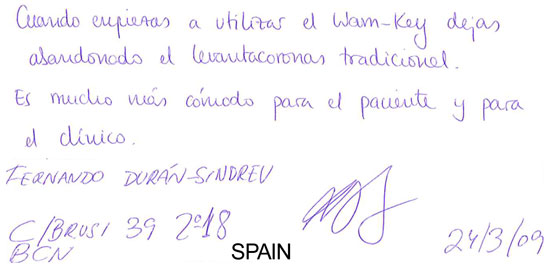 Cuando empiezas a utilizar el Wam-Key dejas
abandonado el levantacoronas tradicional.
Es mucho más cómodo para el paciente y para
el clínico.
FERNANDO DURÁN-SINDREU
C/BRUSI 39 2º18
BCN
SPAIN
24/3/09